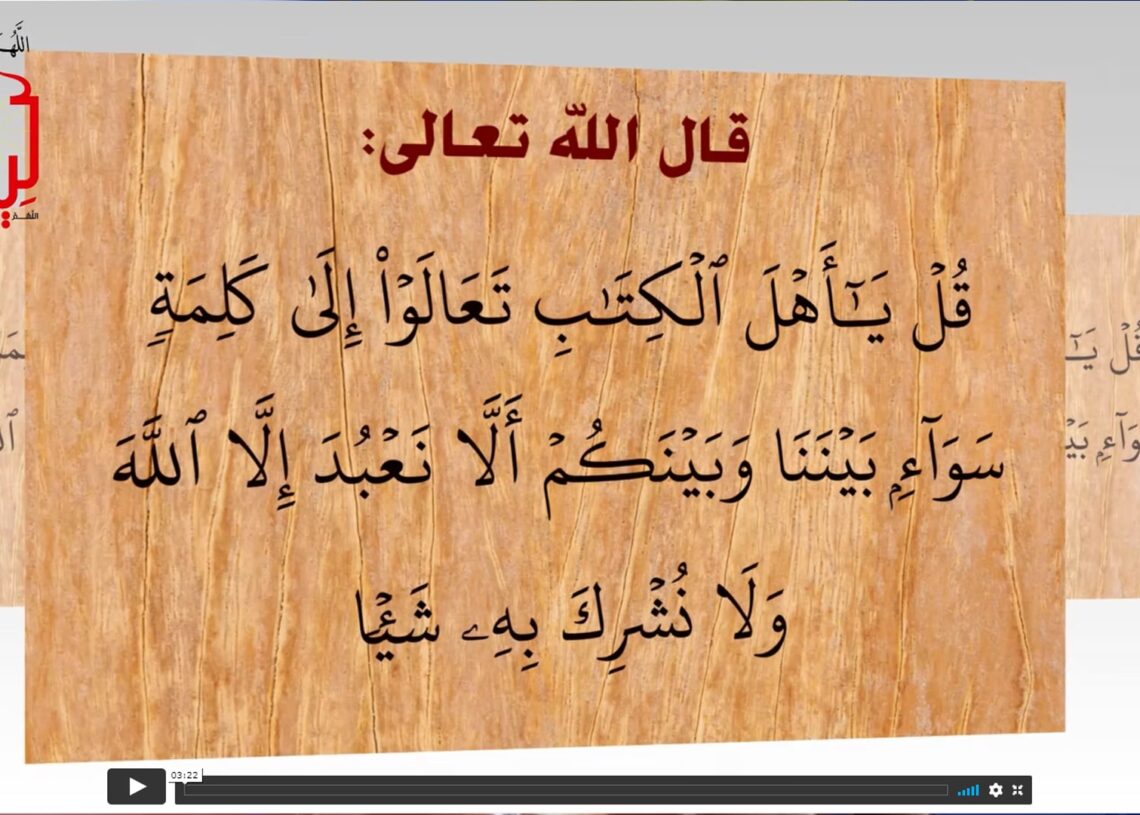 قال الله تعالى:
قُلْ يَـٰٓأَهْلَ ٱلْكِتَـٰبِ تَعَالَوْا۟ إِلَىٰ كَلِمَةٍ
سَوَآءٍ بَيْنَنَا وَبَيْنَكُمْ أَلَّا نَعْبُدَ إِلَّا ٱللَّهَ
وَلَا نُشْرِكَ بِهِۦ شَيْـًٔا
03:22